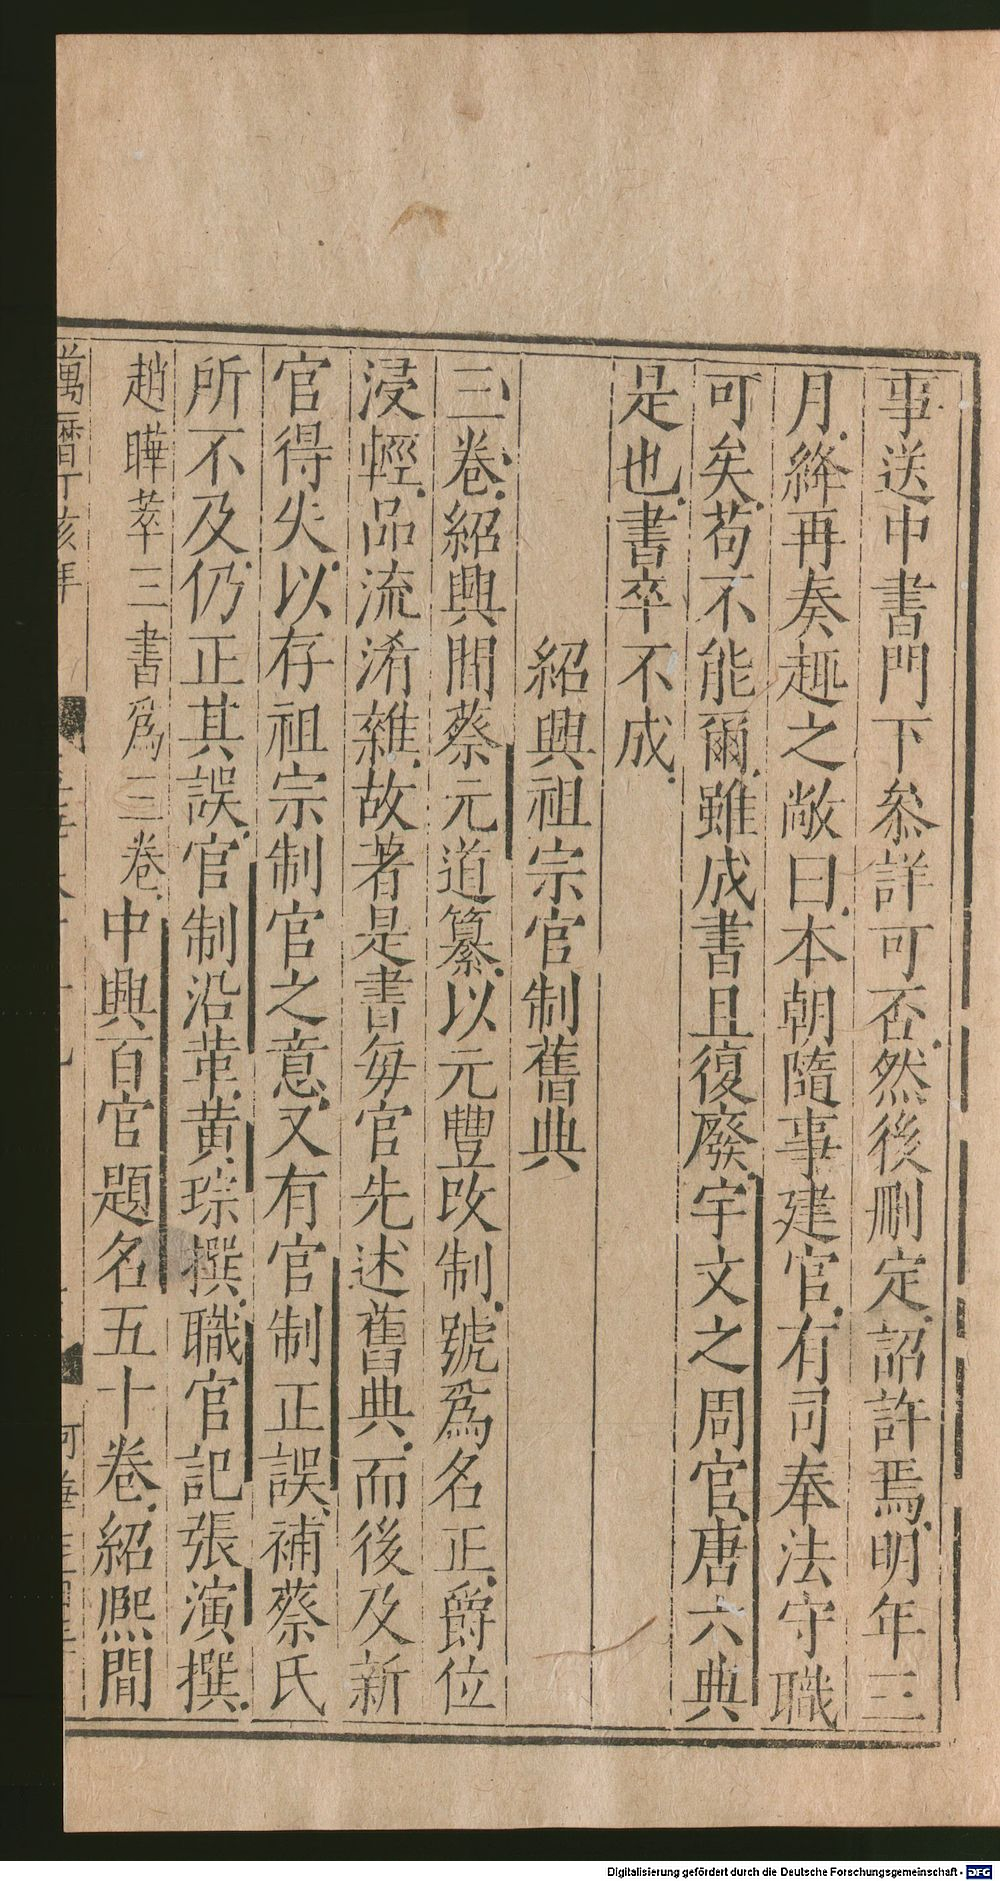 事送中書門下叅詳可否然後刪定詔許焉明年三
月絳再奏趣之敞曰本朝隨事建官有司奉法守職
可矣苟不能爾雖成書且復廢宇文之周官唐六典
是也書卒不成
紹興祖宗官制舊典
三卷紹興間蔡元道纂以元豐改制號爲名正爵位
浸輕品流淆雜故著是書每官先述舊典而後及新
官得失以存祖宗制官之意又有官制正誤補蔡氏
所不及仍正其誤官制沿革黃琮撰職官記張演撰
趙曄萃三書爲三卷中興百官題名五十卷紹熙間
萬曆丁亥年
Digitalisierung gefördert durch die Deutsche Forschungsgemeinschaft - DFG